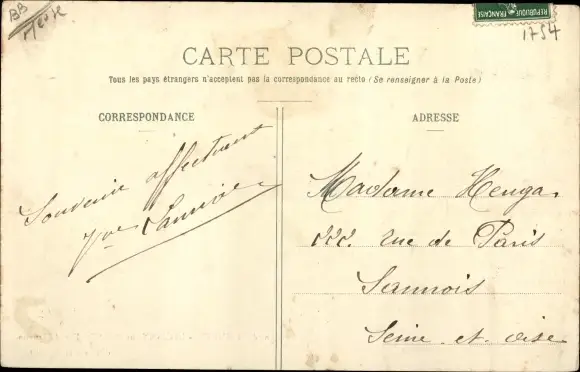 BB
Meuse
REPUBLIQUE
FRANÇAISE
1754
CARTE POSTALE
Tous les pays étrangers n'acceptent pas la correspondance au recto (Se renseigner à la Poste)
CORRESPONDANCE
Souvenir affectueux
ADRESSE
Madame Henga
222. rue de Paris
Sannois
Seine et Oise